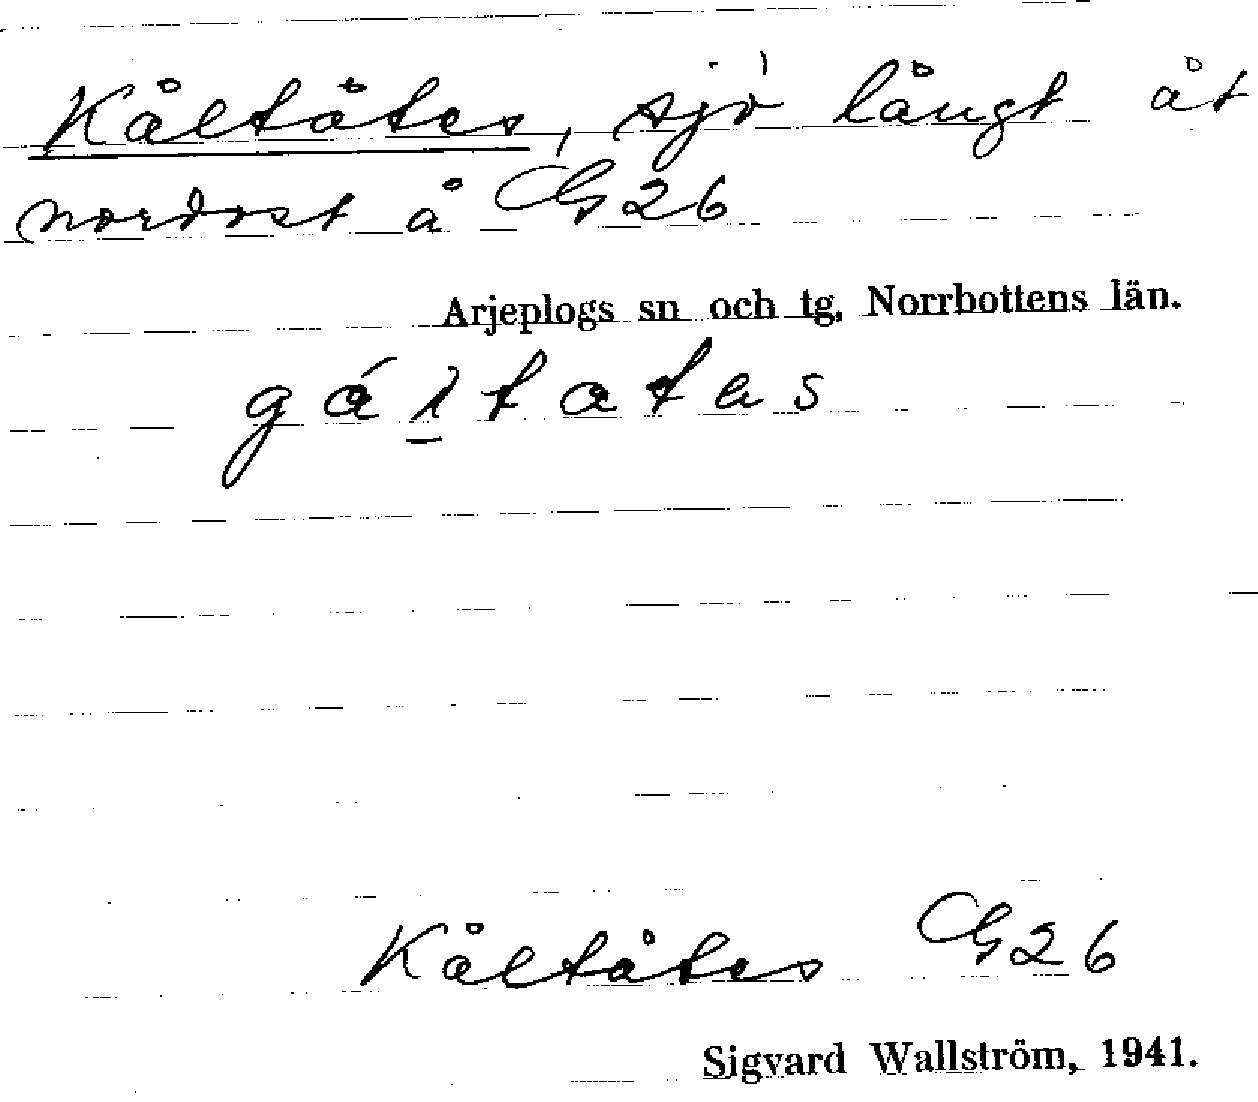 Kåltåtes, sjö långt åt
nordost å G26
Arjeplogs sn och tg, Norrbottens län.
gáλ̱tatas
Kåltåtes G26
Sigvard Wallström, 1941.